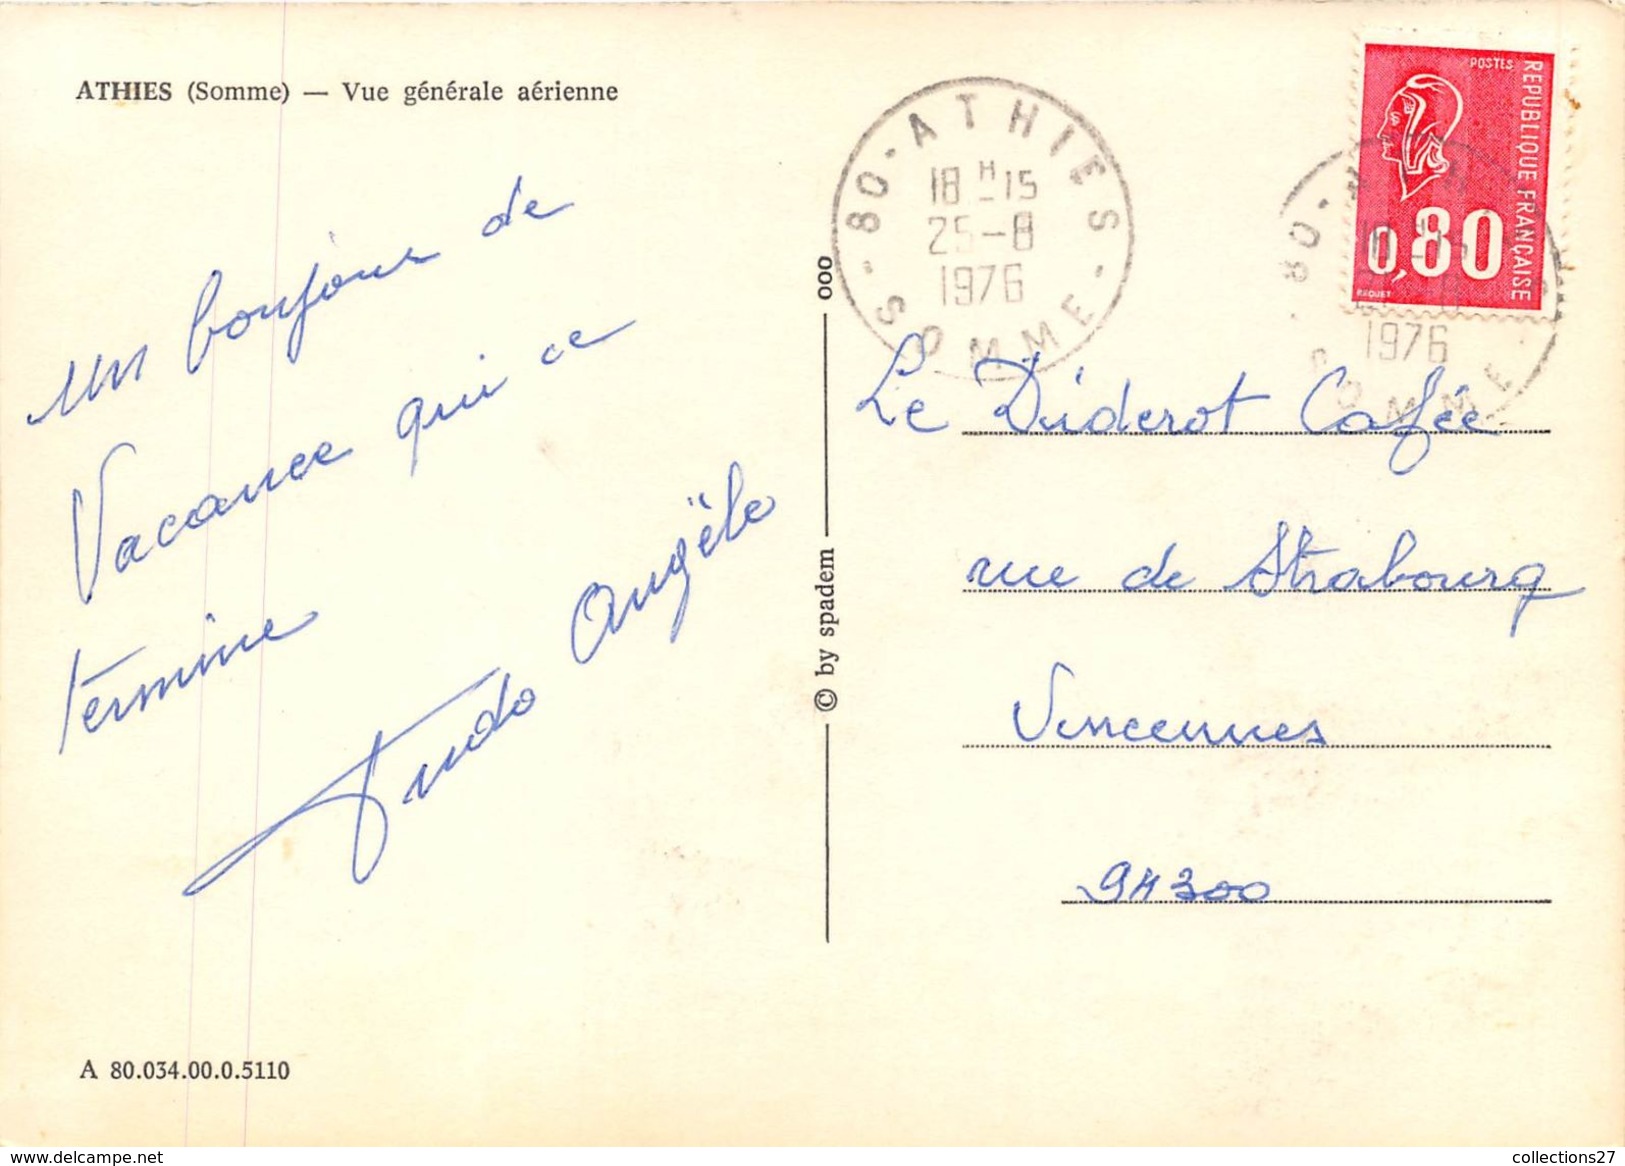 ATHIES (Somme) — Vue générale aérienne
un bonjour de
Vacance qui ce
termine
Angèle
A 80.034.00.0.5110
© by spadem
ooo
80 - ATHIES - SOMME -
18 H 15
25-8
1976
POSTES
REPUBLIQUE FRANÇAISE
0,80
BEQUET
1976
SOMME
Le Diderot Cafée
rue de Strabourg
Vincennes
94300
delcampe.net
collections27